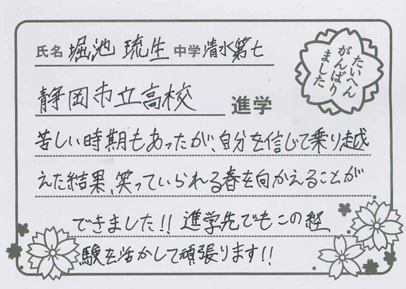 氏名 堀池 琉生 中学 清水第七
たいへん
がんばり
ました
静岡市立高校 進学
苦しい時期もあったが、自分を信じて乗り越
えた結果、笑っていられる春を向かえることが
できました!! 進学先でもこの経
験を活かして頑張ります!!